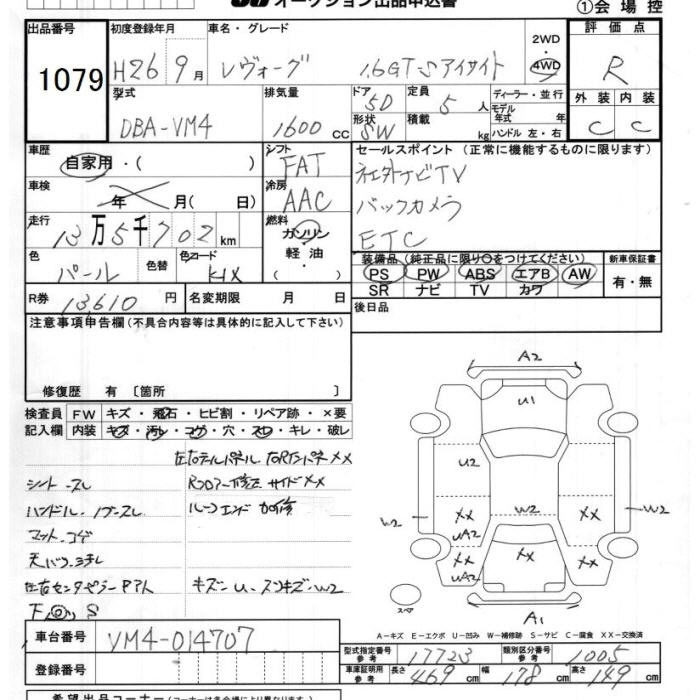 オークション出品申込書
①会場控
出品番号 1079
初度登録年月 H26 9月
車名・グレード レヴォーグ 1.6GT-Sアイサイト
2WD・4WD
評価点 R
外装 C 内装 C
型式 DBA-VM4
排気量 1600cc
ドア 5D 形状 SW
定員 5人 積載 kg
ディーラー・並行
モデル年式 年式
ハンドル 左・右
車歴 自家用・( )
シフト FAT
セールスポイント(正常に機能するものに限ります)
社外ナビTV
バックカメラ
ETC
車検 年 月( 日)
冷房 AAC
走行 13万5千702km
燃料 ガソリン・軽油・
色 パール 色替 色コード K1X
装備品(純正品に限り○をつけてください)
PS PW ABS エアB AW
SR ナビ TV カワ
新車保証書 有・無
R券 13,610円
名変期限 月 日
後日品
注意事項申告欄(不具合内容等は具体的に記入して下さい)
修復歴 有〔箇所 〕
検査員記入欄
FW キズ・飛石・ヒビ割・リペア跡・×要
内装 キズ・汚れ・コゲ・穴・スレ・キレ・破レ
左右テールパネル. 右RインパネXX
シート-スレ
Rフロアー修正 サイドXX
ハンドル・ノブ-スレ
ルーフエンド加修
マット-コゲ
天バリ-ヨゴレ
左右センタピラーPアト
キズ-U.スリキズ-W2
下◎S
A2
U1
U2
W2
XX
UA2
W2
XX
W2
XX
UA2
XX
XX
スペア
A1
A-キズ E-エクボ U-凹み W-補修跡 S-サビ C-腐食 XX-交換済
車台番号 VM4-014707
登録番号
型式指定番号 参考 17723
類別区分番号 参考 1005
車庫証明用 参考 長さ 469cm 幅 178cm 高さ 149cm
希望出品コーナー(コーナーは各会場により異なります)